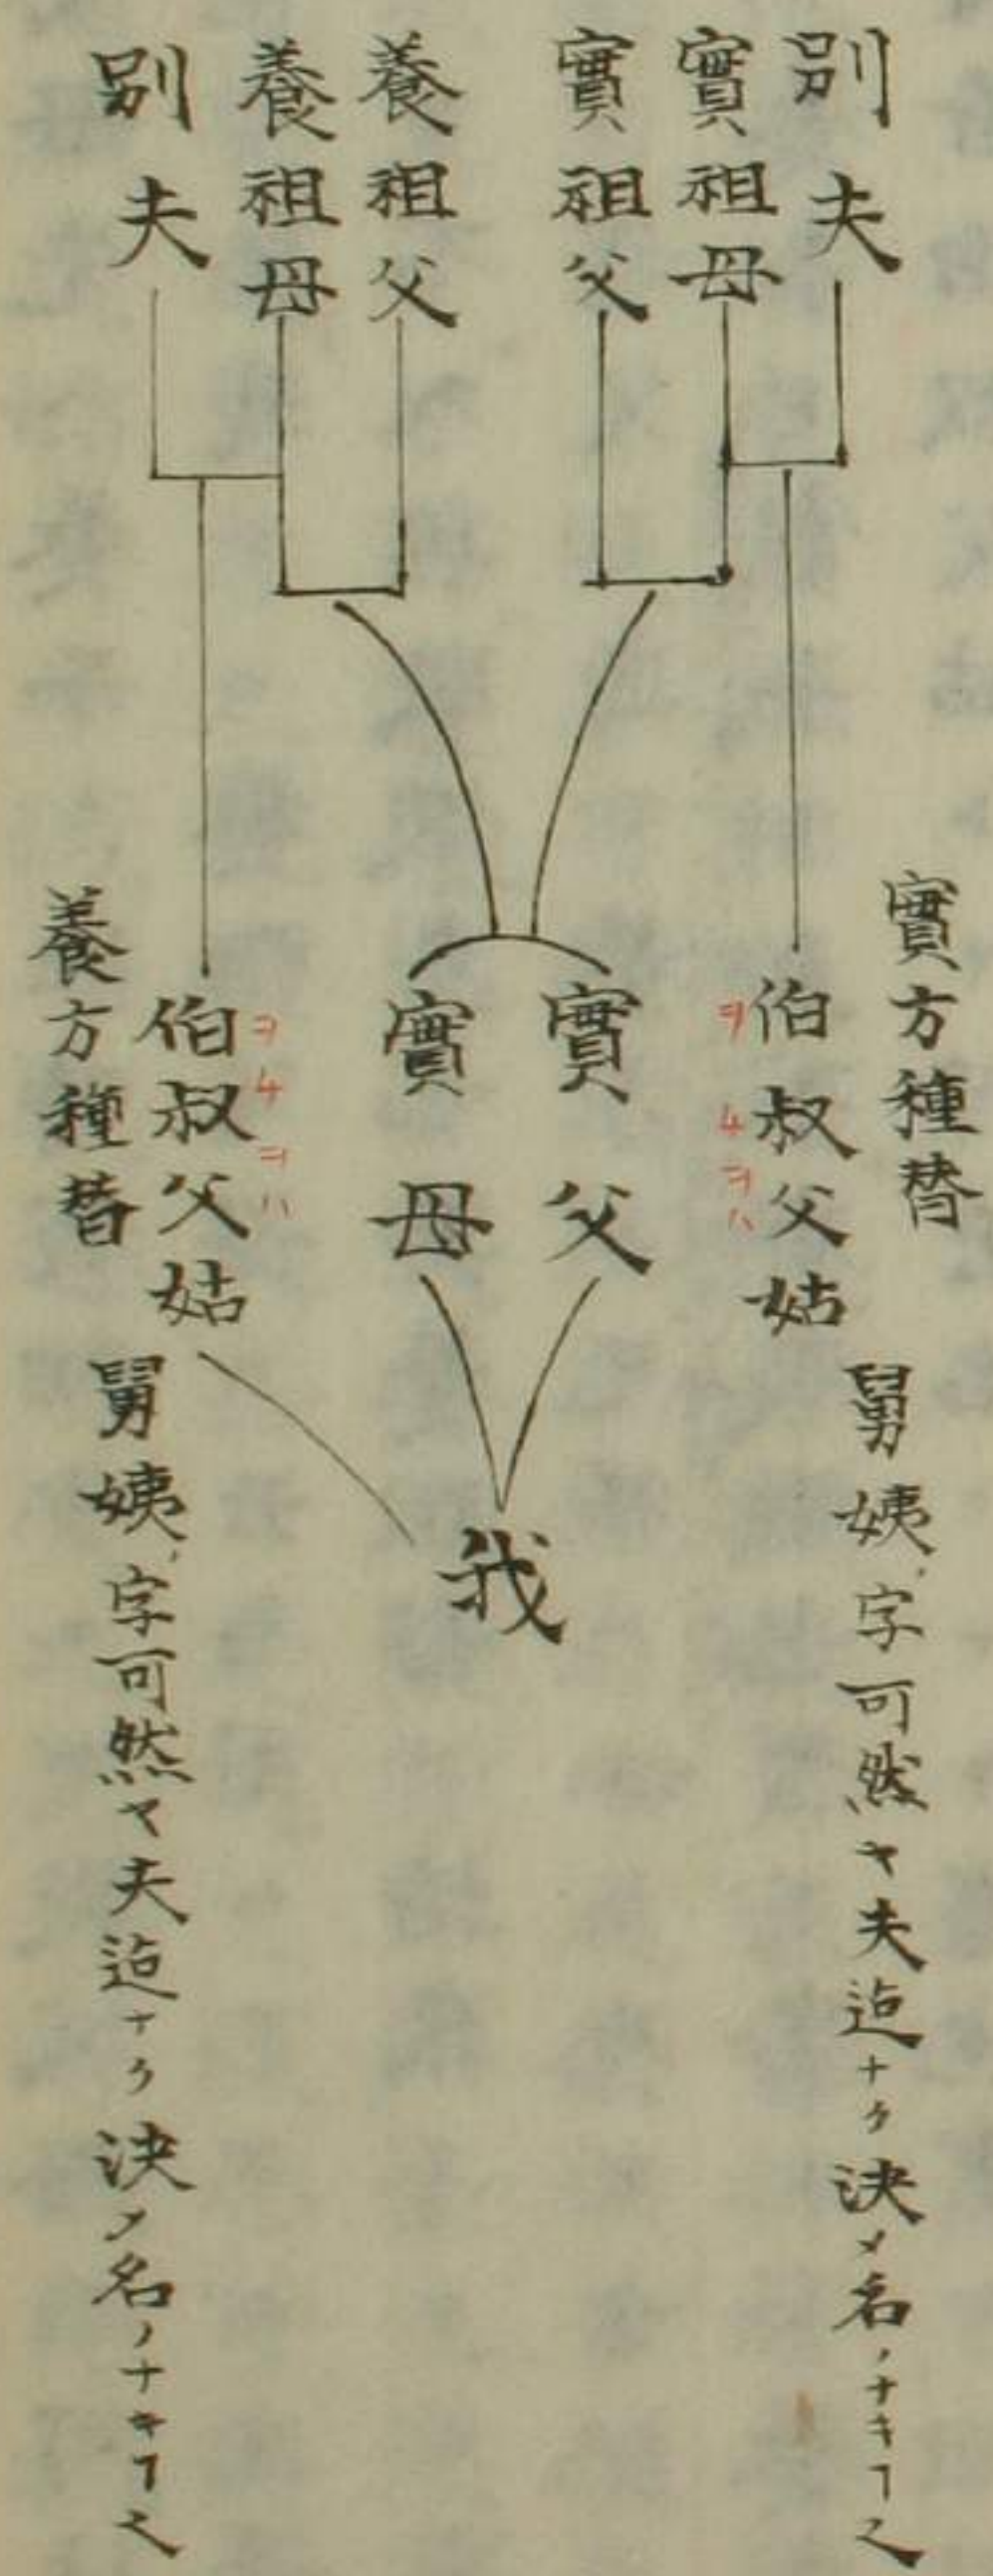 別夫
實祖母
實祖父
養祖父
養祖母
別夫
實方種替
伯叔父姑
ヲチヲハ
舅姨ノ字可然ヤ夫迠ナク決メ名ノナキヿ也
實父
實母
我
ヲチヲハ
伯叔父姑
養方種替
舅姨ノ字可然ヤ夫迠ナク決メ名ノナキヿ也